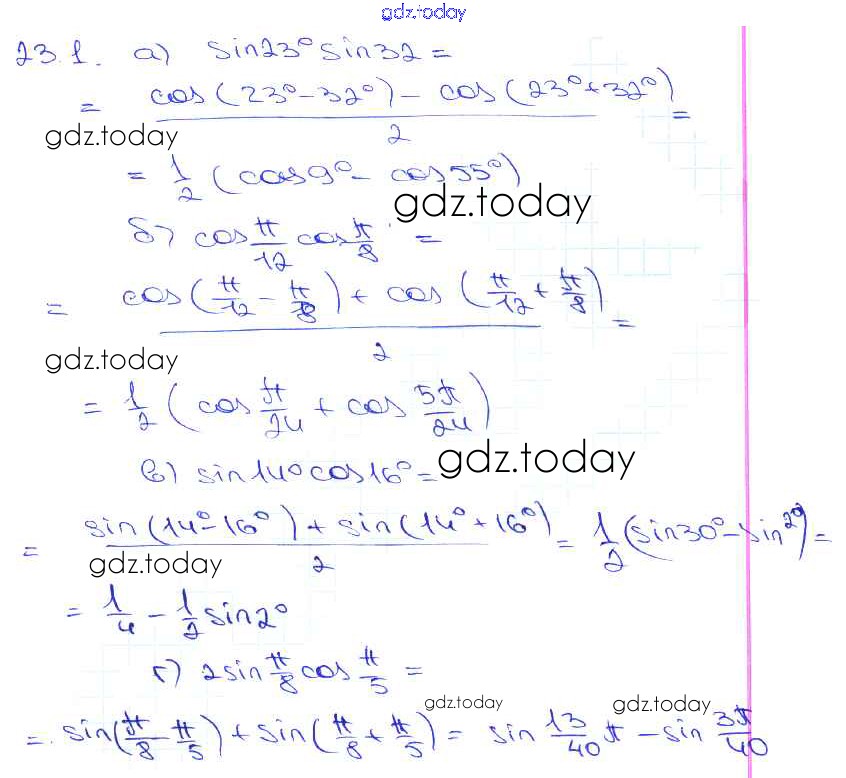 gdz.today
23.1. а) sin23° sin32 =
= (cos(23° - 32°) - cos(23° + 32°))/2 =
gdz.today
= 1/2 (cos9° - cos55°)
gdz.today
б) cos π/12 cos π/8 =
= (cos(π/12 - π/8) + cos(π/12 + π/8))/2 =
gdz.today
= 1/2 (cos π/24 + cos 5π/24)
в) sin14° cos16° =
gdz.today
= (sin(14° - 16°) + sin(14° + 16°))/2 = 1/2 (sin30° - sin2°) =
gdz.today
= 1/4 - 1/2 sin2°
г) 2sin π/8 cos π/5 =
gdz.today gdz.today
= sin(π/8 - π/5) + sin(π/8 + π/5) = sin 13/40 π - sin 3π/40